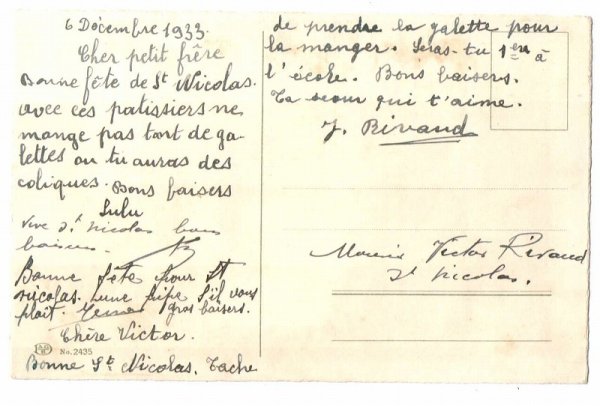 6 Décembre 1933.
Cher petit frère
Bonne fête de St Nicolas.
avec ces patissiers ne
mange pas tant de ga-
lettes ou tu auras des
coliques. Bons baisers
Lulu
Vive St Nicolas bons
baisers.
Bonne fête pour St
nicolas. une pipe S'il vous
plait. gros baisers.
Chère Victor.
No. 2435
Bonne St Nicolas. Tache
de prendre la galette pour
la manger. Seras-tu 1er à
l'école. Bons baisers.
Ta seour qui t'aime.
J. Rivaud
Victor Rivaud
St Nicolas.